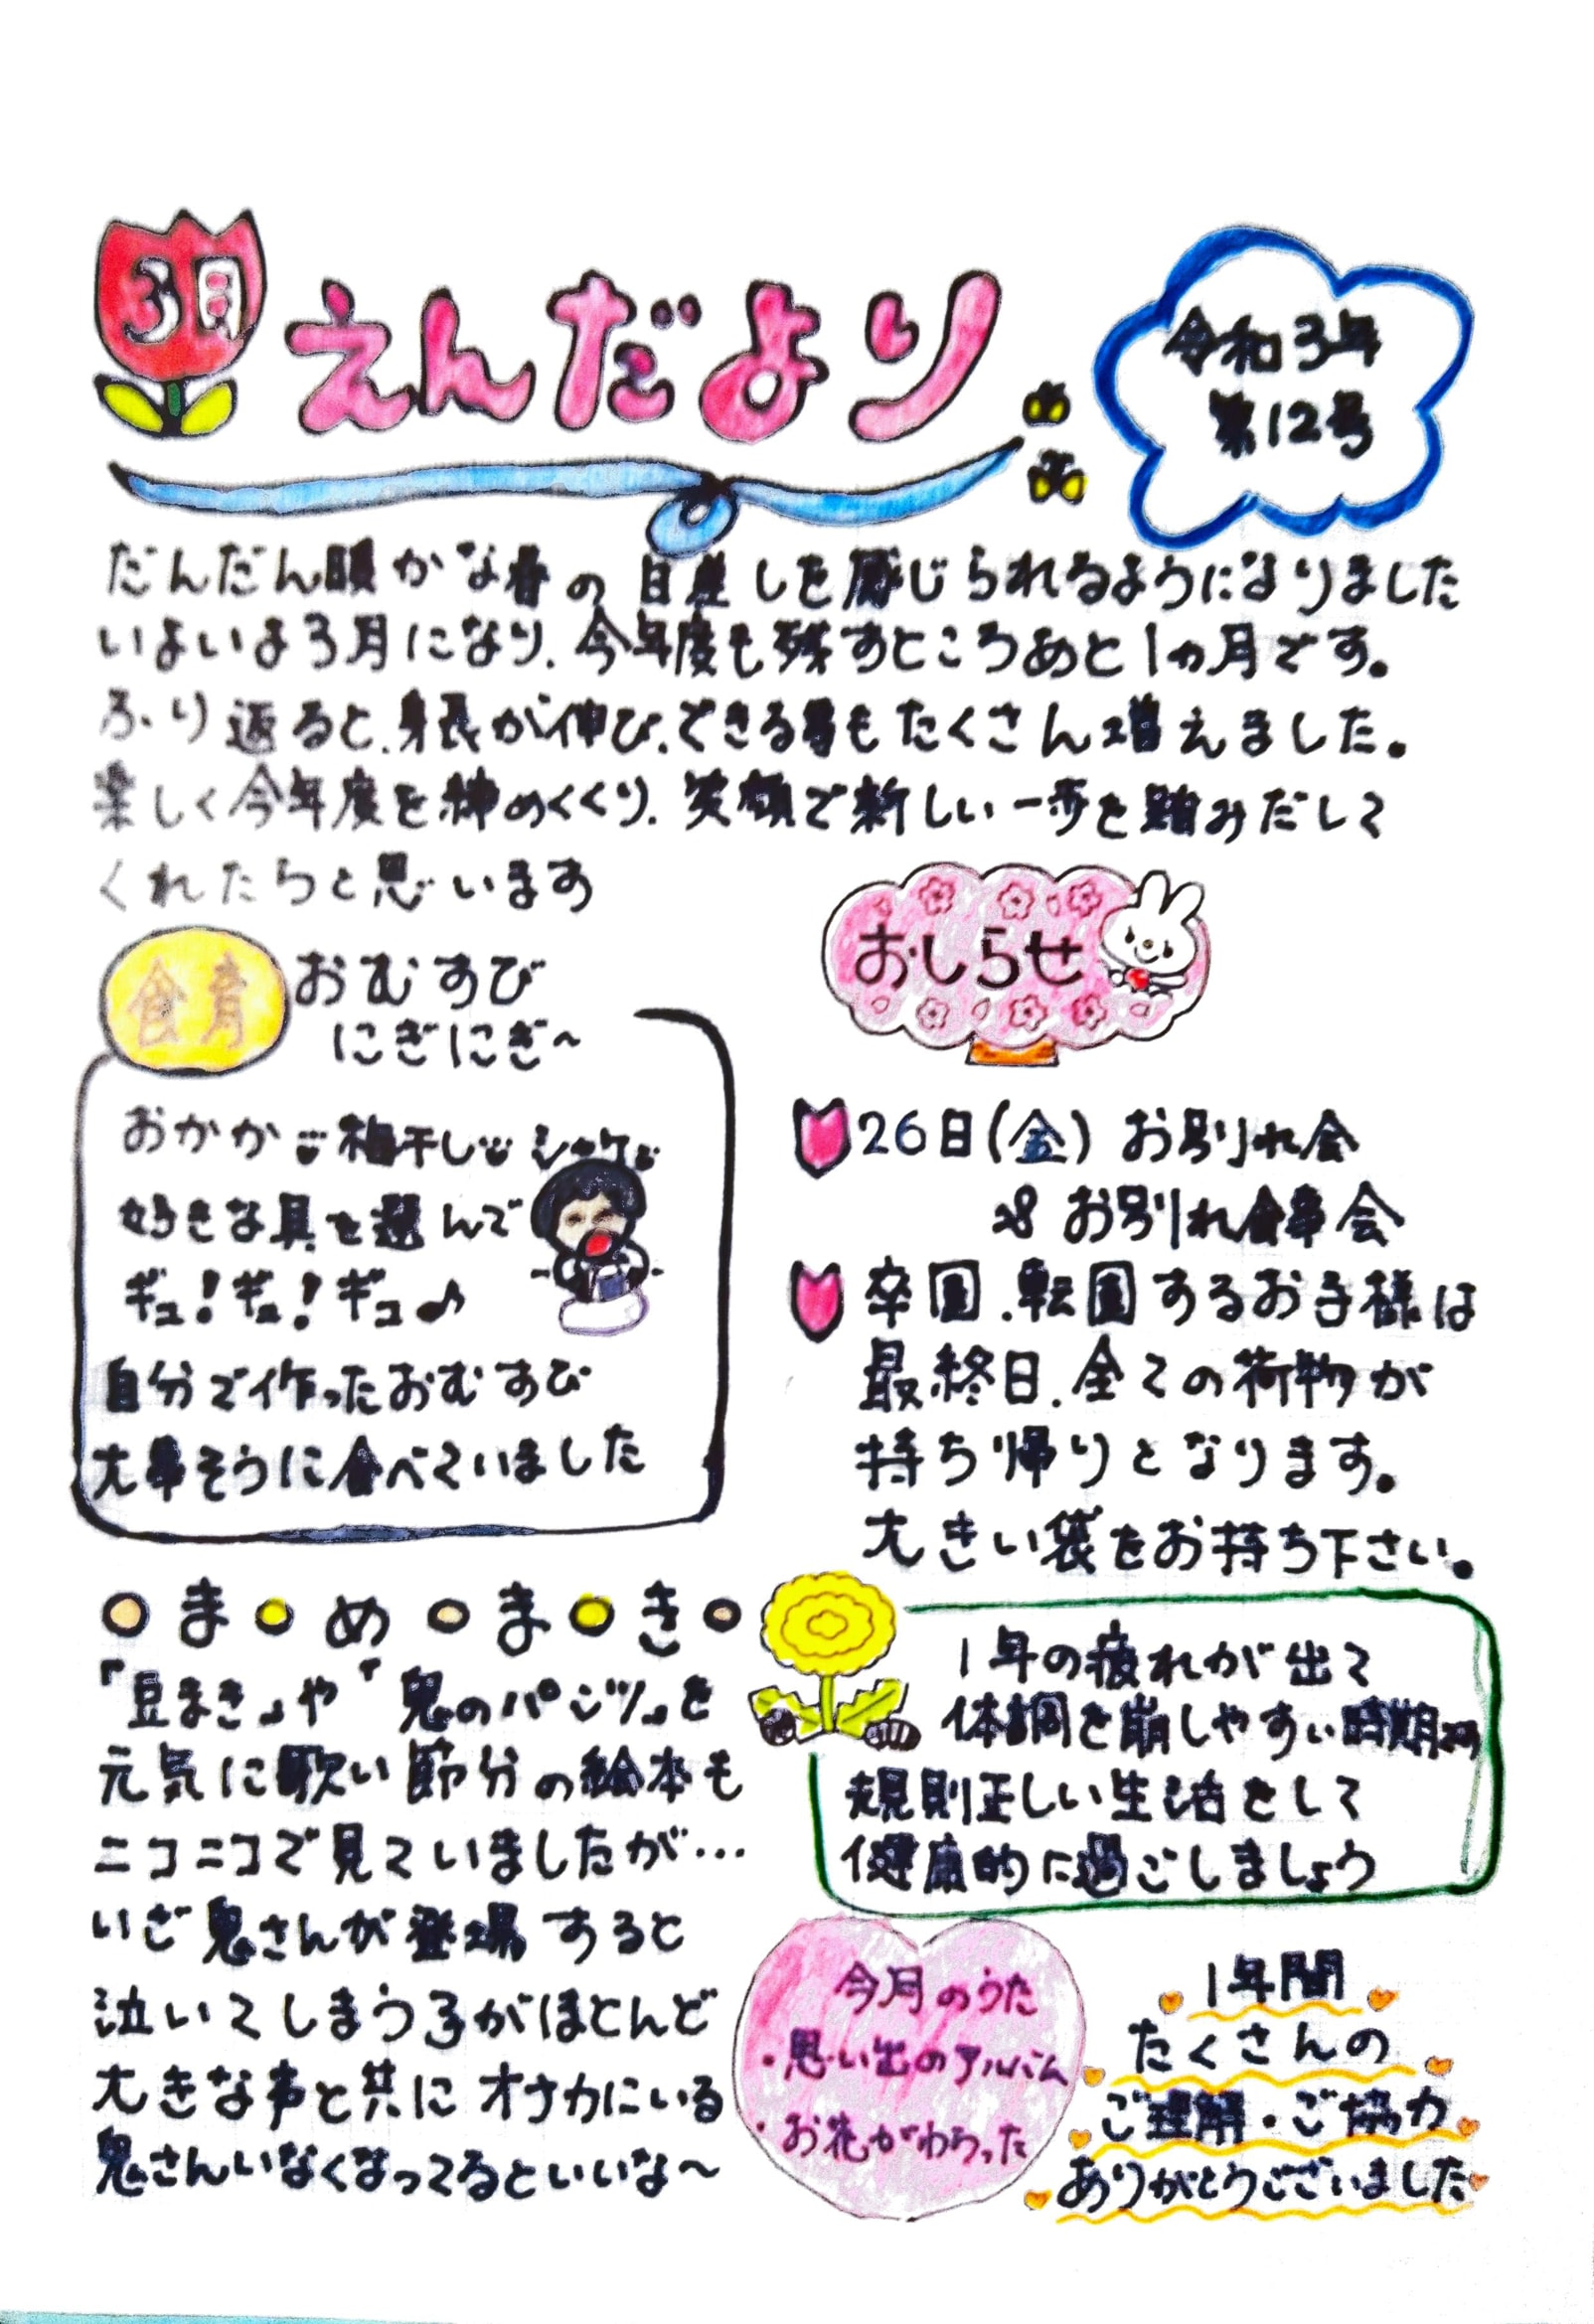 3月
えんだより
令和3年
第12号
だんだん暖かな春の日差しを感じられるようになりました
いよいよ3月になり、今年度も残すところあと1ヵ月です。
ふり返ると、身長が伸び、できる事もたくさん増えました。
楽しく今年度を締めくくり、笑顔で新しい一歩を踏みだして
くれたらと思います
食育
おむすび
にぎにぎ~
おかか 梅干し シャケ
好きな具を選んで
ギュ!ギュ!ギュ♪
自分で作ったおむすび
大事そうに食べていました
おしらせ
26日(金) お別れ会
& お別れ食事会
卒園、転園するお子様は
最終日、全ての荷物が
持ち帰りとなります。
大きい袋をお持ち下さい。
まめまき
「豆まき」や「鬼のパンツ」を
元気に歌い節分の絵本も
ニコニコで見ていましたが…
いざ鬼さんが登場すると
泣いてしまう子がほとんど
大きな声と共にオナカにいる
鬼さんいなくなってるといいな~
1年の疲れが出て
体調を崩しやすい時期
規則正しい生活をして
健康的に過ごしましょう
今月のうた
・思い出のアルバム
・お花がわらった
1年間
たくさんの
ご理解・ご協力
ありがとうございました